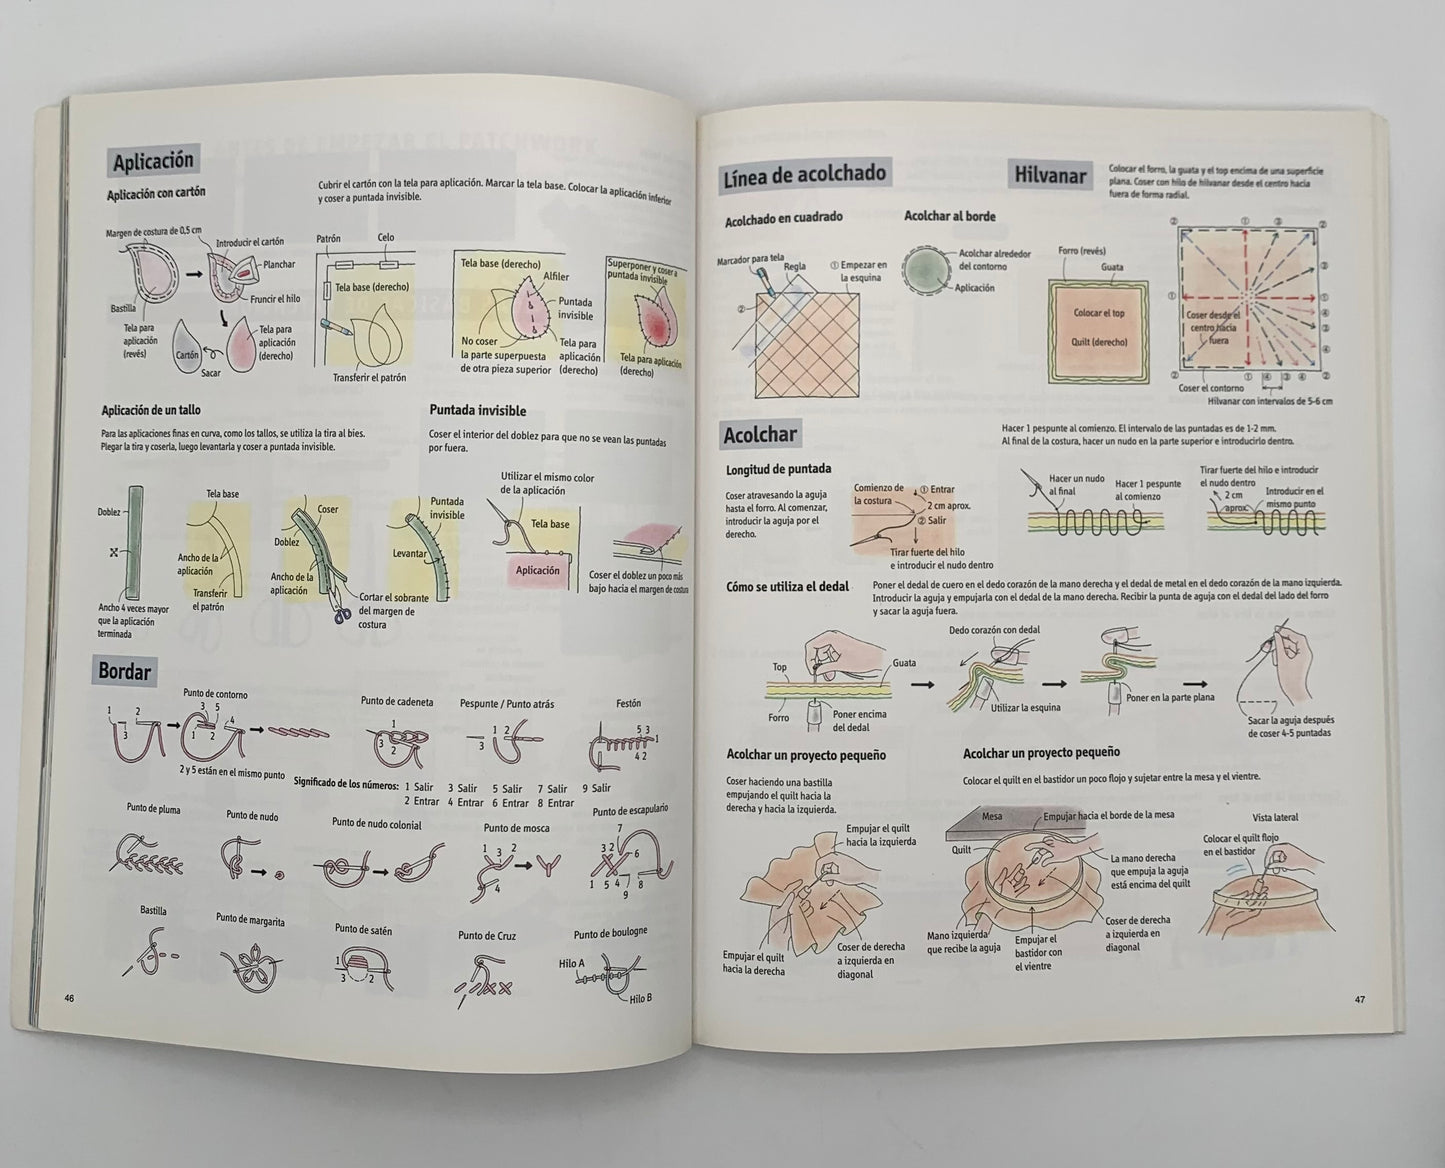 Aplicación
Aplicación con cartón
Cubrir el cartón con la tela para aplicación. Marcar la tela base. Colocar la aplicación inferior
y coser a puntada invisible.
Margen de costura de 0,5 cm
Introducir el cartón
Planchar
Fruncir el hilo
Bastilla
Tela para
aplicación
(revés)
Cartón
Sacar
Tela para
aplicación
(derecho)
Patrón
Celo
Tela base (derecho)
Transferir el patrón
Tela base (derecho)
Alfiler
Puntada
invisible
No coser
la parte superpuesta
de otra pieza superior
Tela para
aplicación
(derecho)
Superponer y coser a
puntada invisible
Tela para aplicación
(derecho)
Aplicación de un tallo
Para las aplicaciones finas en curva, como los tallos, se utiliza la tira al bies.
Plegar la tira y coserla, luego levantarla y coser a puntada invisible.
Doblez
Ancho 4 veces mayor
que la aplicación
terminada
Tela base
Ancho de la
aplicación
Transferir
el patrón
Coser
Doblez
Ancho de la
aplicación
Cortar el sobrante
del margen de
costura
Puntada
invisible
Levantar
Puntada invisible
Coser el interior del doblez para que no se vean las puntadas
por fuera.
Utilizar el mismo color
de la aplicación
Tela base
Aplicación
Coser el doblez un poco más
bajo hacia el margen de costura
Bordar
Punto de contorno
1 2 3
3 5 4 1 2
2 y 5 están en el mismo punto
Punto de cadeneta
1 3 2
Pespunte / Punto atrás
1 2 3
Festón
5 3 1
4 2
Significado de los números: 1 Salir 3 Salir 5 Salir 7 Salir 9 Salir
2 Entrar 4 Entrar 6 Entrar 8 Entrar
Punto de pluma
Punto de nudo
Punto de nudo colonial
Punto de mosca
1 3 2
4
Punto de escapulario
7
3 2 6
1 5 4 8
9
Bastilla
Punto de margarita
Punto de satén
1
3 2
Punto de Cruz
Punto de boulogne
Hilo A
Hilo B
46
Línea de acolchado
Acolchado en cuadrado
Marcador para tela
Regla
① Empezar en
la esquina
②
Acolchar al borde
Acolchar alrededor
del contorno
Aplicación
Hilvanar
Colocar el forro, la guata y el top encima de una superficie
plana. Coser con hilo de hilvanar desde el centro hacia
fuera de forma radial.
Forro (revés)
Guata
Colocar el top
Quilt (derecho)
② ① ③ ②
③
① ①
④
③
④
② ① ④ ③ ④ ②
Coser desde el
centro hacia
fuera
Coser el contorno
Hilvanar con intervalos de 5-6 cm
Acolchar
Hacer 1 pespunte al comienzo. El intervalo de las puntadas es de 1-2 mm.
Al final de la costura, hacer un nudo en la parte superior e introducirlo dentro.
Longitud de puntada
Coser atravesando la aguja
hasta el forro. Al comenzar,
introducir la aguja por el
derecho.
Comienzo de
la costura
① Entrar
2 cm aprox.
② Salir
Tirar fuerte del hilo
e introducir el nudo dentro
Hacer un nudo
al final
Hacer 1 pespunte
al comienzo
Tirar fuerte del hilo e introducir
el nudo dentro
2 cm
aprox.
Introducir en el
mismo punto
Cómo se utiliza el dedal
Poner el dedal de cuero en el dedo corazón de la mano derecha y el dedal de metal en el dedo corazón de la mano izquierda.
Introducir la aguja y empujarla con el dedal de la mano derecha. Recibir la punta de aguja con el dedal del lado del forro
y sacar la aguja fuera.
Top
Guata
Forro
Poner encima
del dedal
Dedo corazón con dedal
Utilizar la esquina
Poner en la parte plana
Sacar la aguja después
de coser 4-5 puntadas
Acolchar un proyecto pequeño
Coser haciendo una bastilla
empujando el quilt hacia la
derecha y hacia la izquierda.
Empujar el quilt
hacia la izquierda
Empujar el quilt
hacia la derecha
Coser de derecha
a izquierda en
diagonal
Acolchar un proyecto pequeño
Colocar el quilt en el bastidor un poco flojo y sujetar entre la mesa y el vientre.
Mesa
Empujar hacia el borde de la mesa
Quilt
La mano derecha
que empuja la aguja
está encima del quilt
Mano izquierda
que recibe la aguja
Empujar el
bastidor con
el vientre
Coser de derecha
a izquierda en
diagonal
Vista lateral
Colocar el quilt flojo
en el bastidor
47